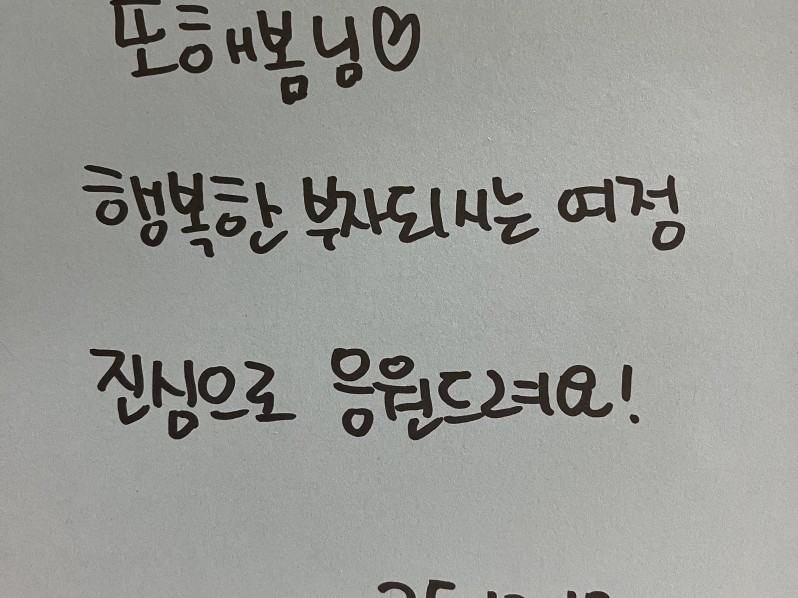 또해봄님♡
행복한 부자되시는 여정
진심으로 응원드려요!